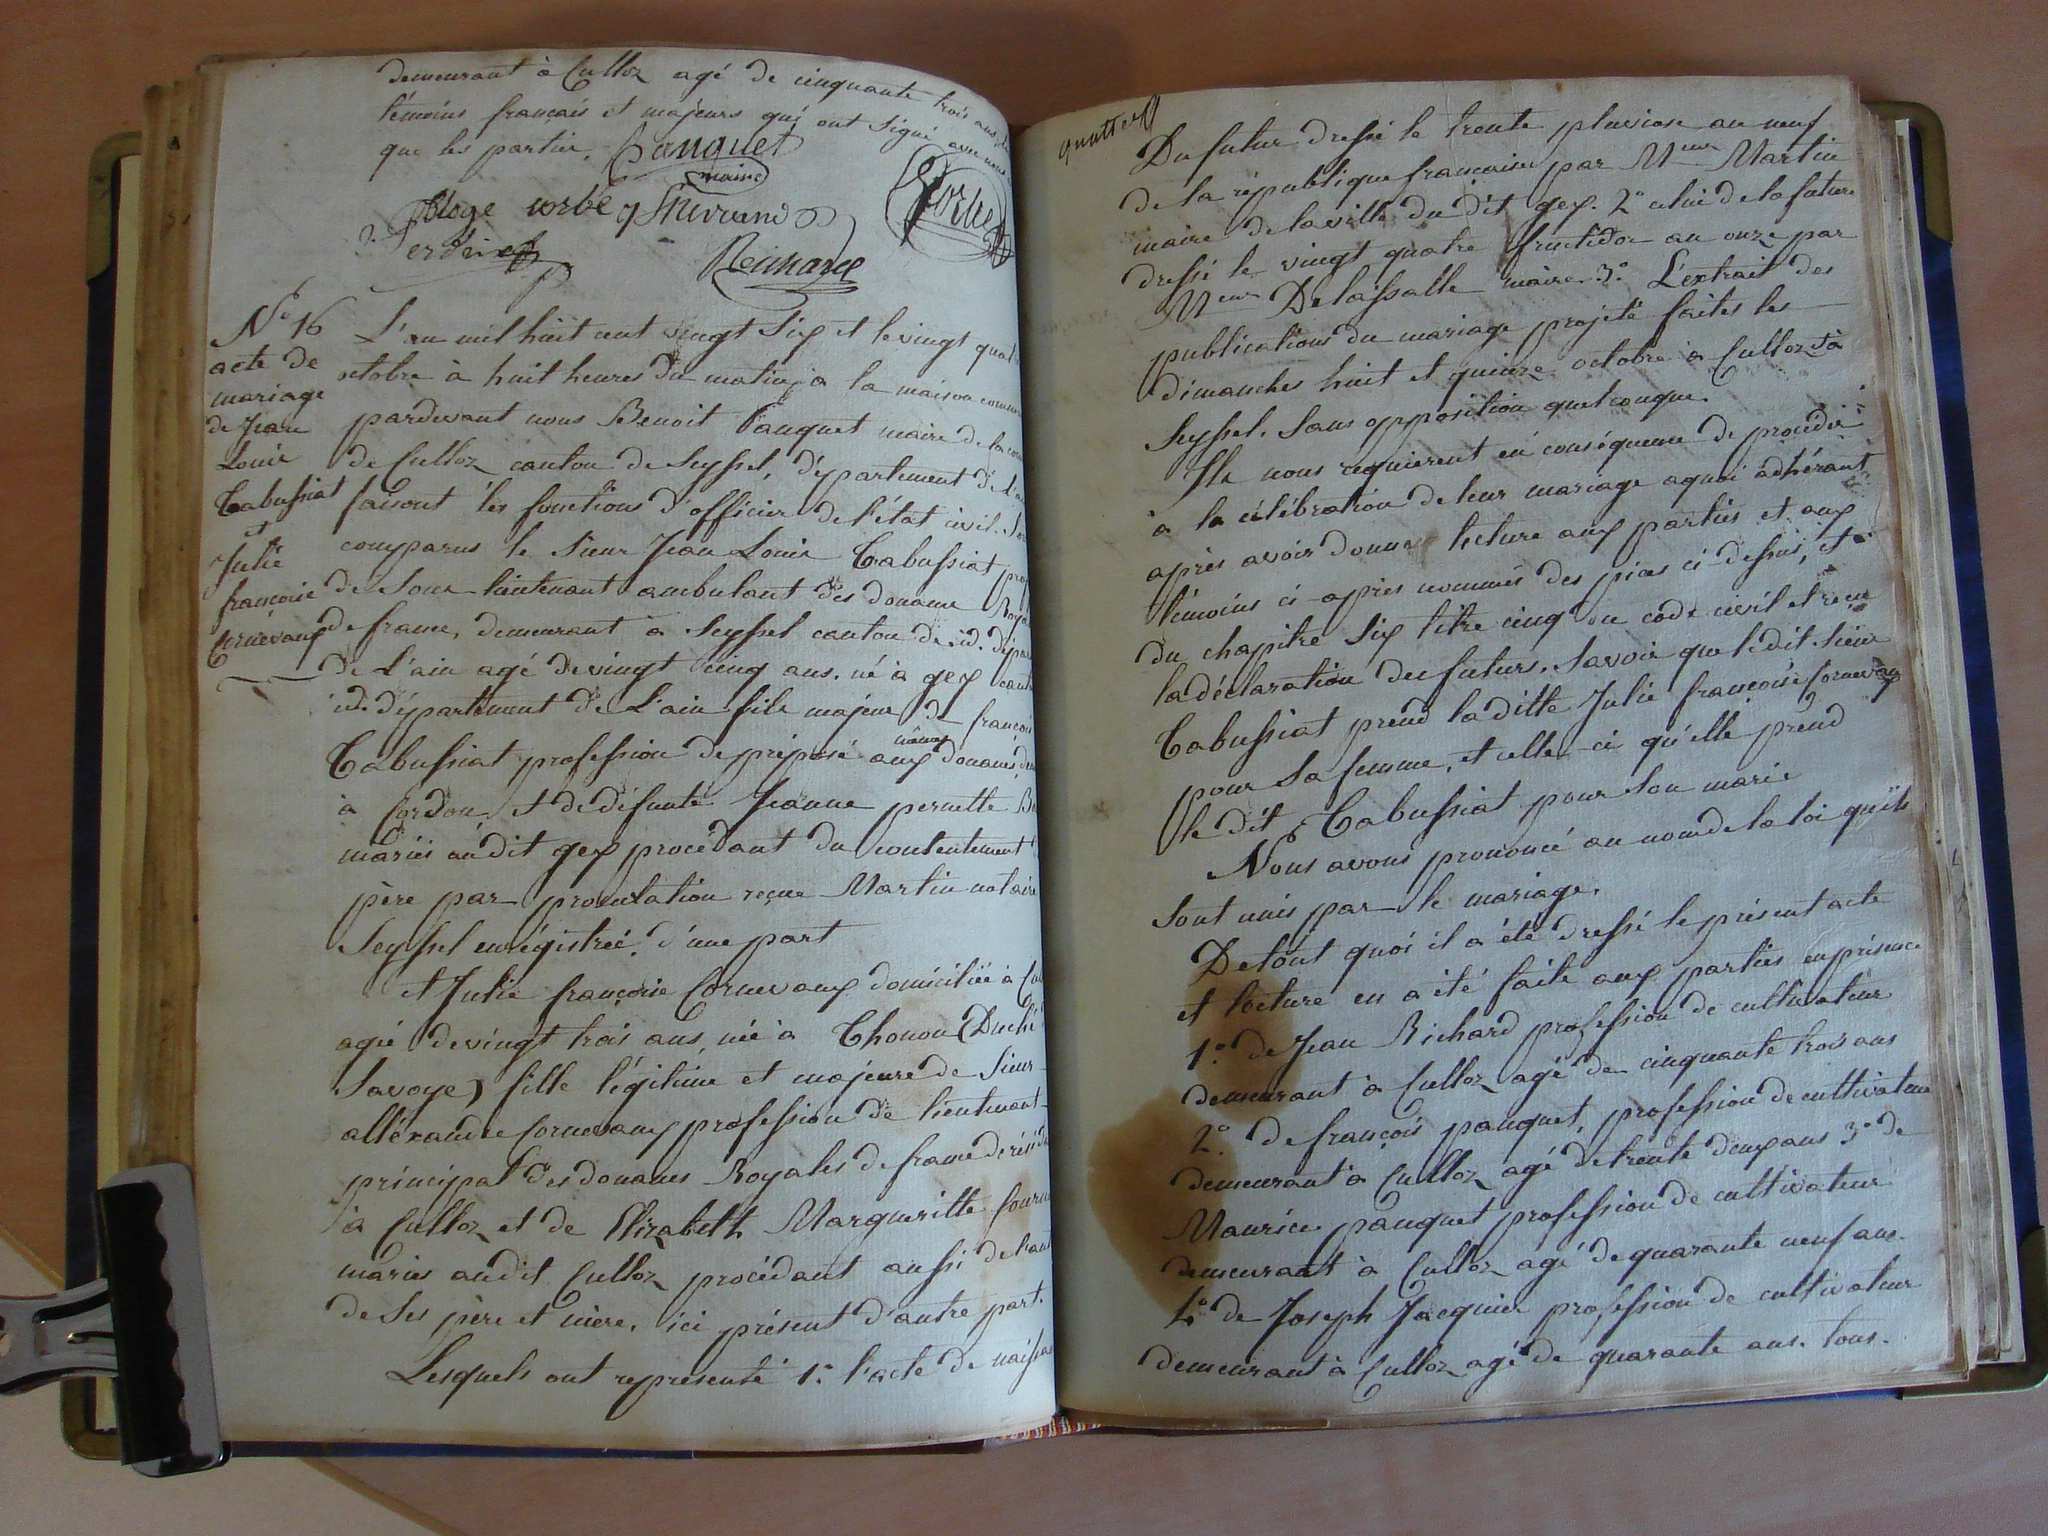 demeurant à Culloz agé de cinquante trois ans
témoins français et majeurs qui ont signé avec nous
que les parties. Panquet
maire
Bloge corbe
Richard
N° 16
acte de
mariage
de Jean
Louis
Tabussiat
et
Julie
françoise
Cornevaux
L'an mil huit cent vingt Six et le vingt quat
octobre à huit heures du matin, à la maison commu
pardevant nous Benoit Panquet maire de la com
de Culloz canton de Seyssel, département de l'ai
faisant les fonctions d'officier de l'état civil. Son
comparus le Sieur Jean Louis Tabussiat prof
de Sous-lieutenant ambulant des douanes Roya
de france, demeurant à Seyssel canton de id. dépar
de L'ain agé de vingt cinq ans. né à gex cant
id. département de L'ain fils majeur de françois
Tabussiat profession de préposé aux mêmes douanes, de
à Cordon et de défunte Jeanne pernette Be
mariés audit gex procédant du consentement
père par procuration reçue Martin notaire
Seyssel enrégistrée. d'une part
et Julie françoise Cornevaux domiciliée à Cu
agée de vingt trois ans, née à Thonon (Duché
Savoye) fille légitime et majeure de Sieur
alléxandre Cornevaux profession de lieutenant
principal des douanes Royales de france de résid
à Culloz et de Elizabeth Margueritte fourni
mariés audit Culloz procédant aussi de l'aut
de Ses père et mère, ici présent d'autre part.
Lesquels ont représenté 1° l'acte de naissa
Du futur dressé le trente pluviose an neuf
de la république française par Meur Martin
maire de la ville du dit gex. 2° celui de la future
dressé le vingt quatre fructidor an onze par
Meur Delaissalle maire 3° L'extrait des
publications du mariage projeté faites les
dimanches huit et quinze octobre à Culloz et à
Seyssel. Sans opposition quelconque.
Ils nous requièrent en conséquence de procéder
à la célébration de leur mariage aquoi adhérant
après avoir donné lecture aux parties et aux
témoins ci-après nommés des pièces ci-dessus, et
du chapitre Six titre cinq du code civil et reçu
la déclaration des futurs. Savoir que ledit Sieur
Tabussiat prend laditte Julie françoise Cornevaux
pour Sa femme, et celle-ci qu'elle prend
le dit Tabussiat pour Son mari
Nous avons prononcé au nom de la loi qu'ils
Sont unis par le mariage.
De tout quoi il a été dressé le présent acte
et lecture en a été faite aux parties en présence
1° de Jean Richard profession de cultivateur
demeurant à Culloz agé de cinquante trois ans
2° de françois panquet, profession de cultivateur
demeurant à Culloz agé de trente deux ans 3° de
Maurice panquet profession de cultivateur
demeurant à Culloz agé de quarante neuf ans.
4° de Joseph Jacquier profession de cultivateur
demeurant à Culloz agé de quarante ans. tous.